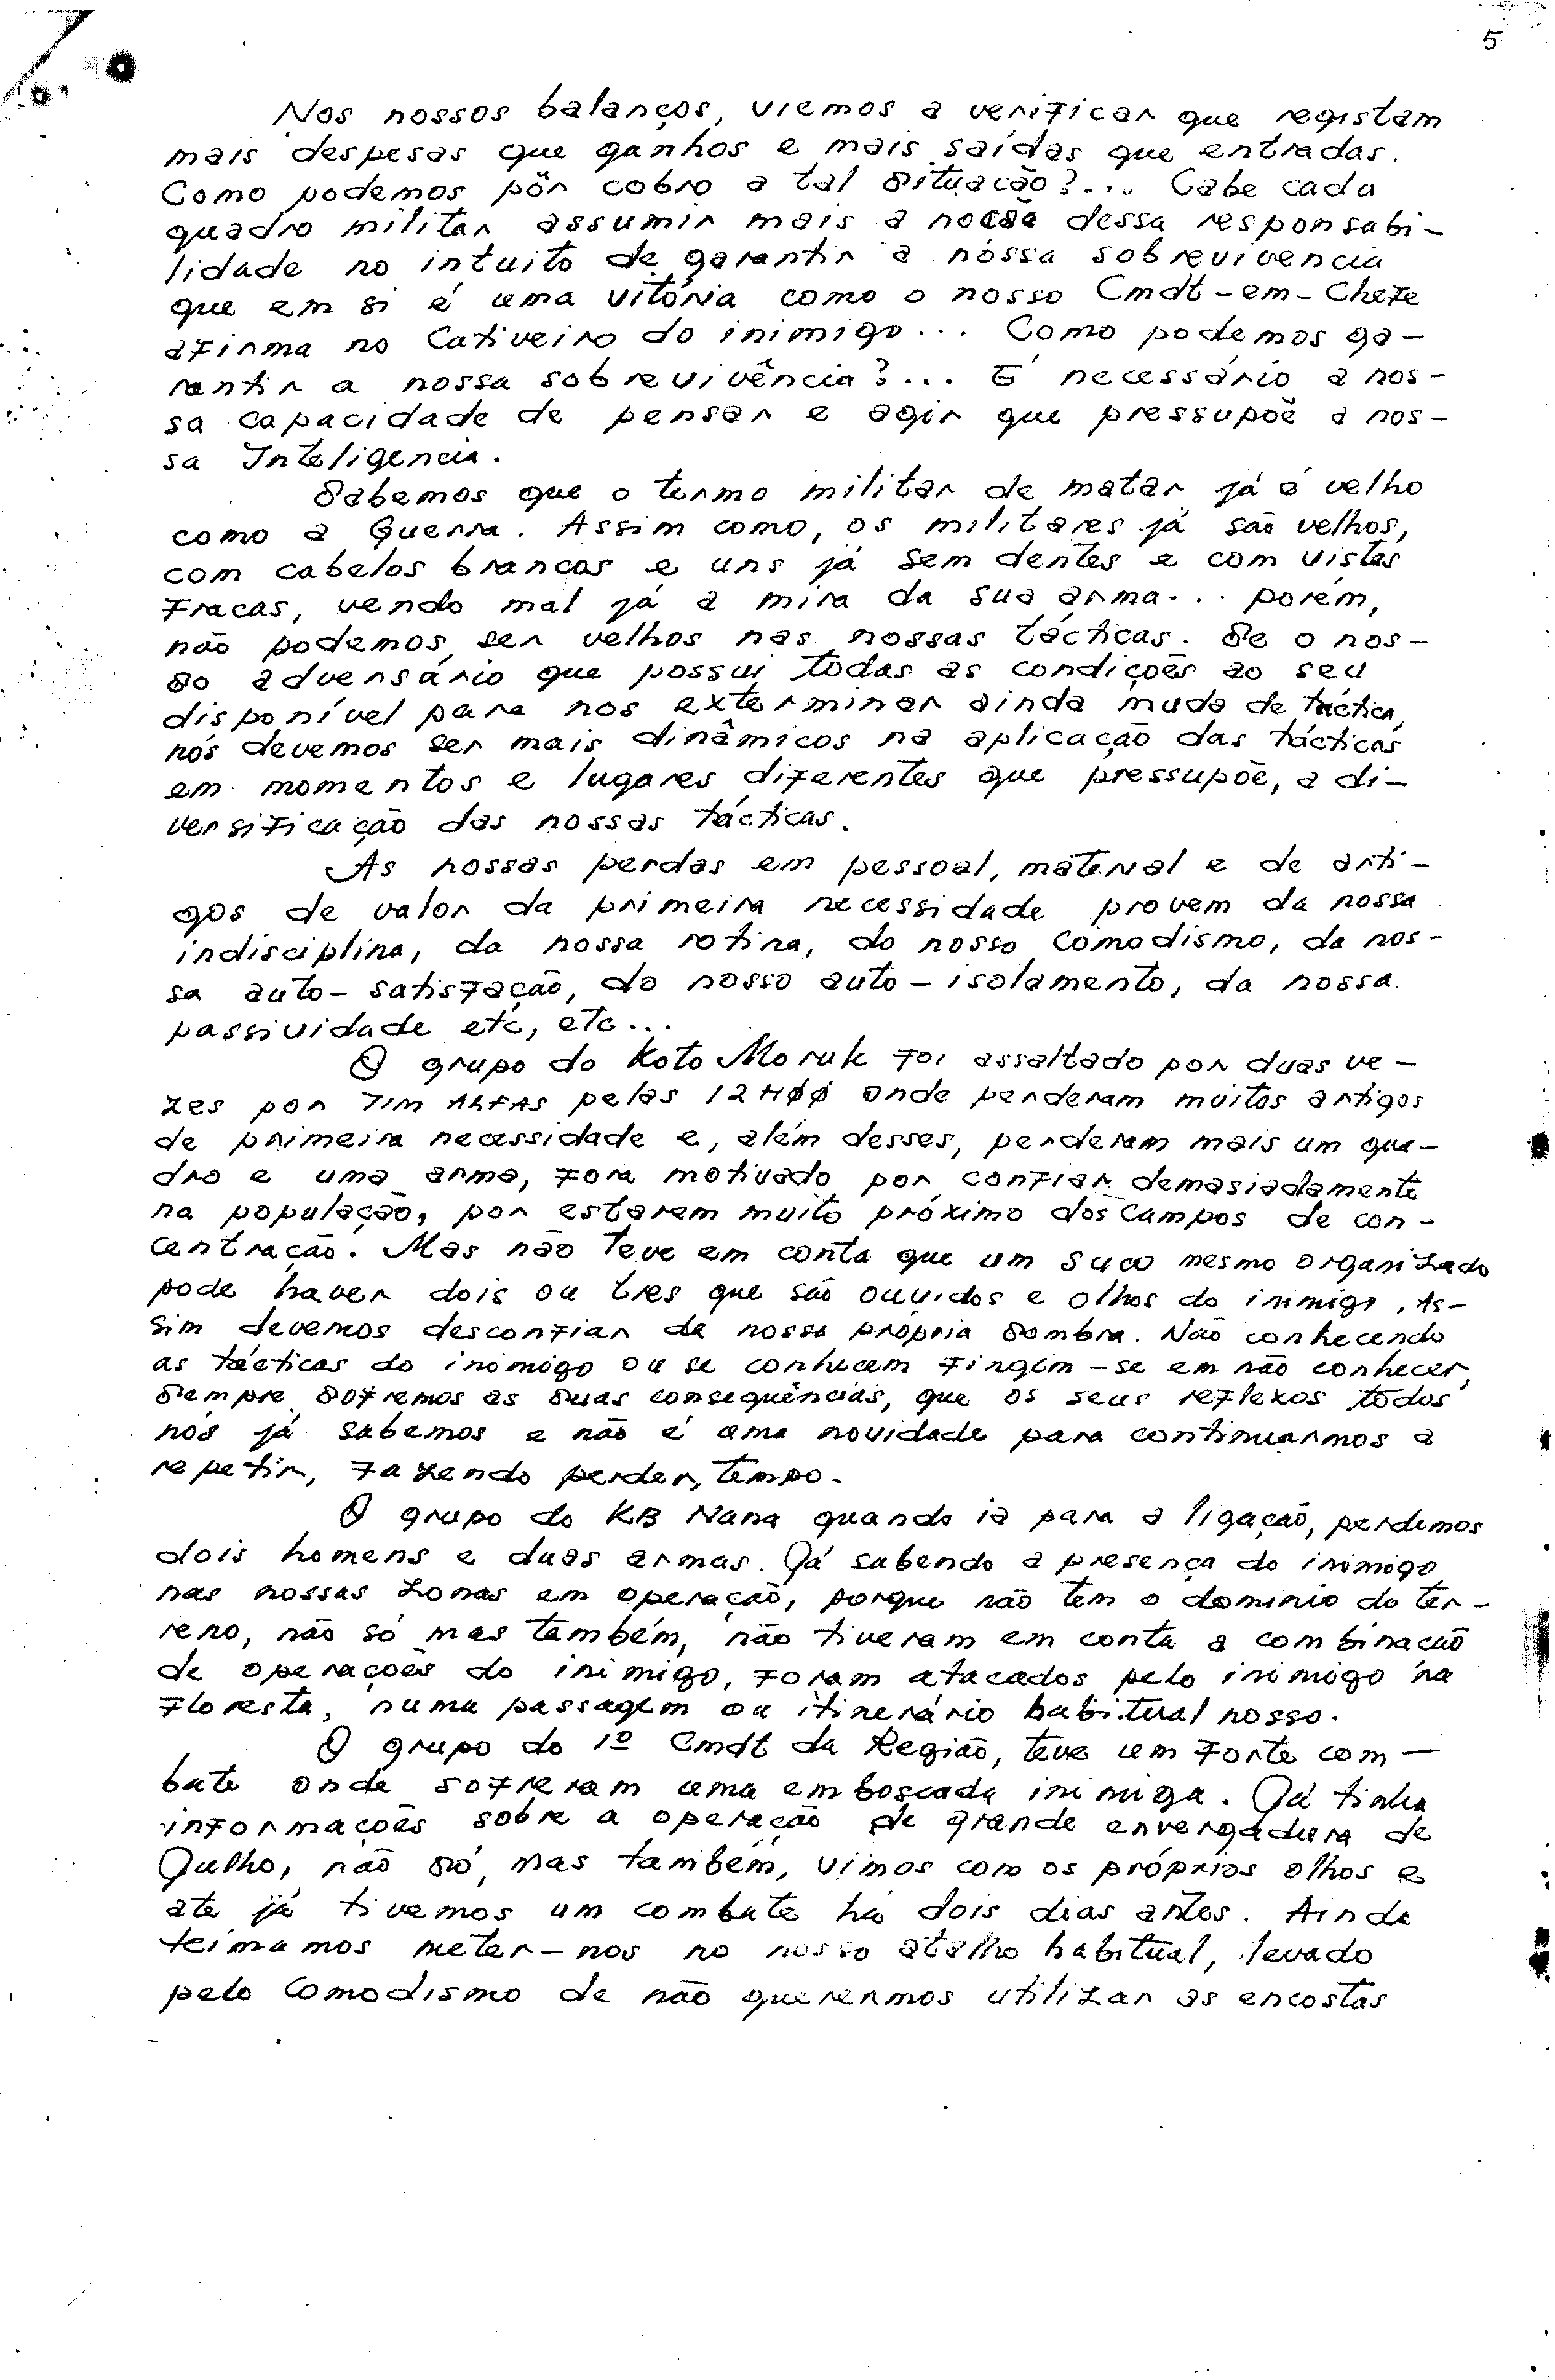 5
Nos nossos balanços, viemos a verificar que registam
mais despesas que ganhos e mais saídas que entradas.
Como podemos pôr cobro a tal situação?... Cabe cada
quadro militar assumir mais a dessa responsabi-
lidade no intuito de garantir a nossa sobrevivencia
que em si é uma vitória como o nosso Cmdt-em-Chefe
afirma no Cativeiro do inimigo... Como podemos ga-
rantir a nossa sobrevivência?... É necessário a nos-
sa capacidade de pensar e agir que pressupõe a nos-
sa Inteligencia.
Sabemos que o termo militar de matar já é velho
como a Guerra. Assim como, os militares já são velhos,
com cabelos brancos e uns já sem dentes e com vistas
fracas, vendo mal já a mira da sua arma... porém,
não podemos ser velhos nas nossas tácticas. Se o nos-
so adversário que possui todas as condições ao seu
disponível para nos exterminar ainda muda de táctica,
nós devemos ser mais dinâmicos na aplicação das tácticas
em momentos e lugares diferentes que pressupõe, a di-
versificação das nossas tácticas.
As nossas perdas em pessoal, material e de arti-
gos de valor da primeira necessidade provem da nossa
indisciplina, da nossa rotina, do nosso comodismo, da nos-
sa auto-satisfação, do nosso auto-isolamento, da nossa
passividade etc, etc...
O grupo do Koto Moruk foi assaltado por duas ve-
zes por TIM ALFAS pelas 12H00 onde perderam muitos artigos
de primeira necessidade e, além desses, perderam mais um qua-
dro e uma arma, fora motivado por confiar demasiadamente
na população, por estarem muito próximo dos Campos de con-
centração. Mas não teve em conta que um suco mesmo organizado
pode haver dois ou tres que são ouvidos e olhos do inimigo. As-
sim devemos desconfiar da nossa própria sombra. Não conhecendo
as tácticas do inimigo ou se conhecem fingem-se em não conhecer,
sempre sofremos as suas consequências, que os seus reflexos todos
nós já sabemos e não é uma novidade para continuarmos a
repetir, fazendo perder, tempo.
O grupo do KB Nana quando ia para a ligação, perdemos
dois homens e duas armas. Já sabendo a presença do inimigo
nas nossas zonas em operação, porque não tem o dominio do ter-
reno, não só mas também, não tiveram em conta a combinação
de operações do inimigo, foram atacados pelo inimigo na
floresta, numa passagem ou itinerário habitual nosso.
O grupo do 1º Cmdt da Região, teve um forte com-
bate onde sofreram uma emboscada inimiga. Já tinha
informações sobre a operação de grande envergadura de
Julho, não só, mas também, vimos com os próprios olhos e
ate já tivemos um combate há dois dias antes. Ainda
teimamos meter-nos no nosso atalho habitual, levado
pelo comodismo de não querermos utilizar as encostas